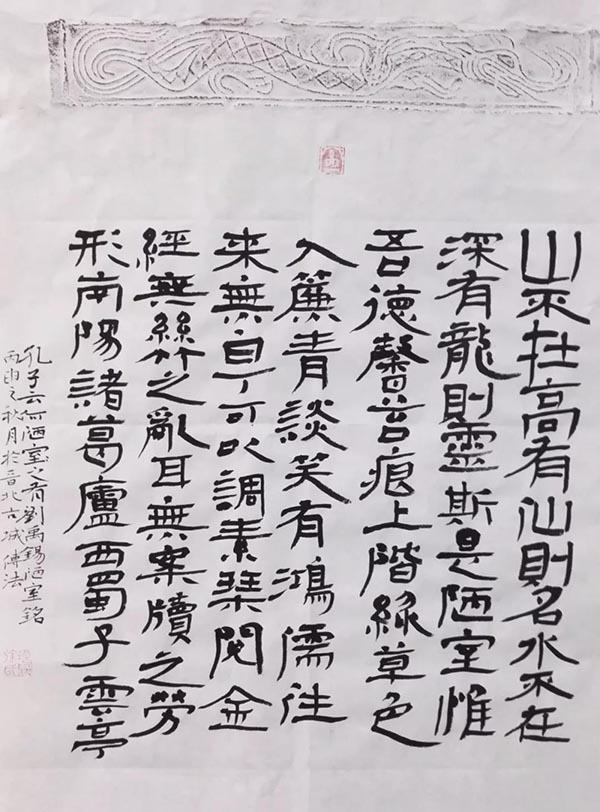 山不在高有仙則名水不在
深有龍則靈斯是陋室惟
吾德馨苔痕上階綠草色
入簾青談笑有鴻儒往
来無白丁可以調素琴閱金
經無絲竹之亂耳無案牘之勞
形南陽諸葛廬西蜀子雲亭
孔子云何陋室之有劉禹錫陋室銘
丙申之秋月於晋北古城傳法